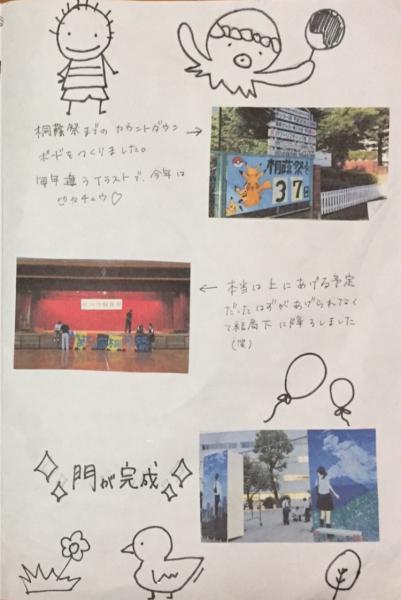 桐蔭祭までのカウントダウン
ボードをつくりました。
毎年違うイラストで、今年は
ピカチュウ♡
桐蔭祭まで
37日
本当は上にあげる予定
だったはずがあげられなく
て結局下に降ろしました
(笑)
門が完成